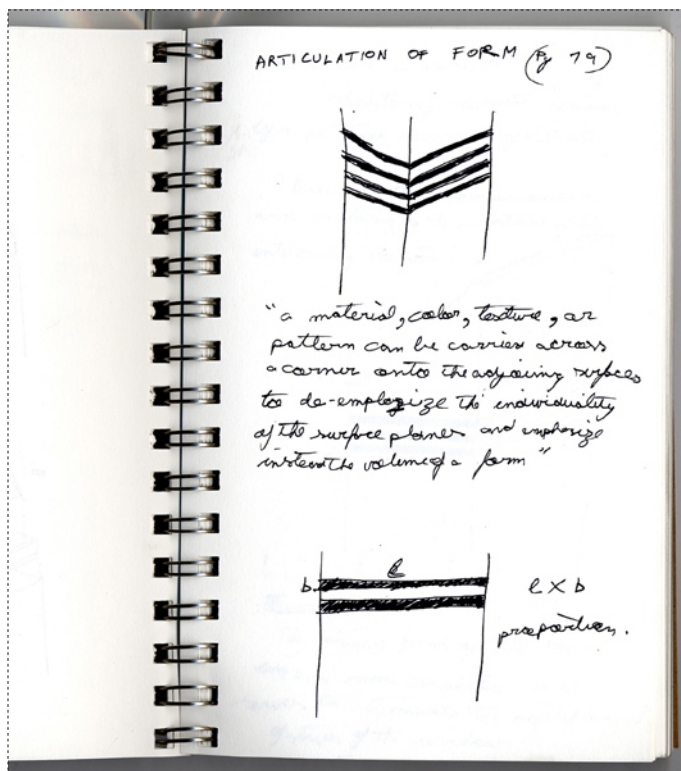 ARTICULATION OF FORM (Pg 79)
"a material, color, texture, or
pattern can be carries across
a corner onto the adjoining surfaces
to de-emphasize the individuality
of the surface planes and emphasize
instead the volume of a form"
l
b
l x b
proportion.